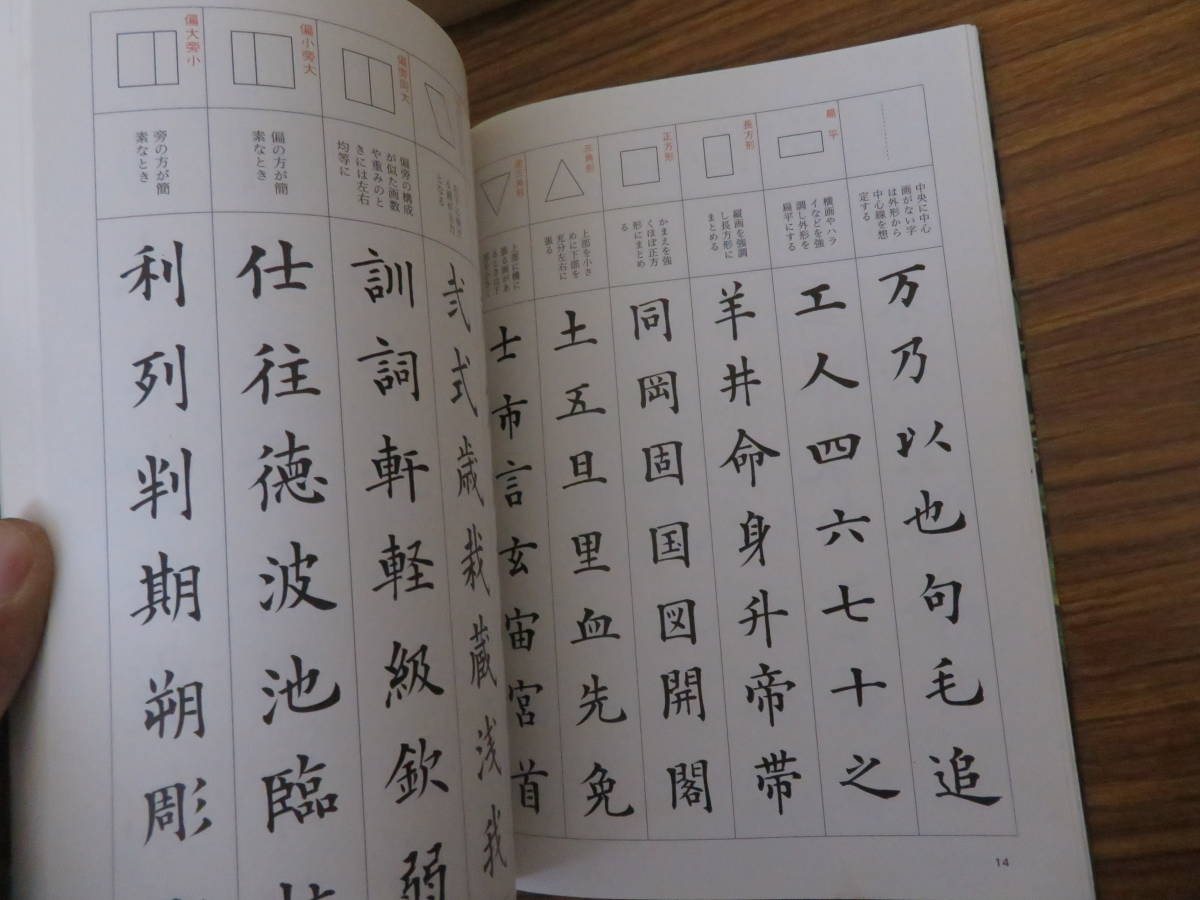 中央に中心
画がない字
は外形から
中心線を想
定する
万乃以也句毛追
扁平
横画やハラ
イなどを強
調し外形を
扁平にする
工人四六七十之
長方形
縦画を強調
し長方形に
まとめる
羊井命身升帝帯
正方形
かまえを強
くほぼ正方
形にまとめ
る
同岡固国図開閣
三角形
上部を小さ
めに下部を
充分左右に
張る
土五旦里血先免
逆三角形
上部に横に
張る画があ
士市言玄宙宮首
14
弐式歳栽蔵浅我
偏旁同大
偏旁の構成
が似た画数
や重みのと
きには左右
均等に
訓詞軒軽級欽弱
偏小旁大
偏の方が簡
素なとき
仕往徳波池臨
偏大旁小
旁の方が簡
素なとき
利列判期朔彫